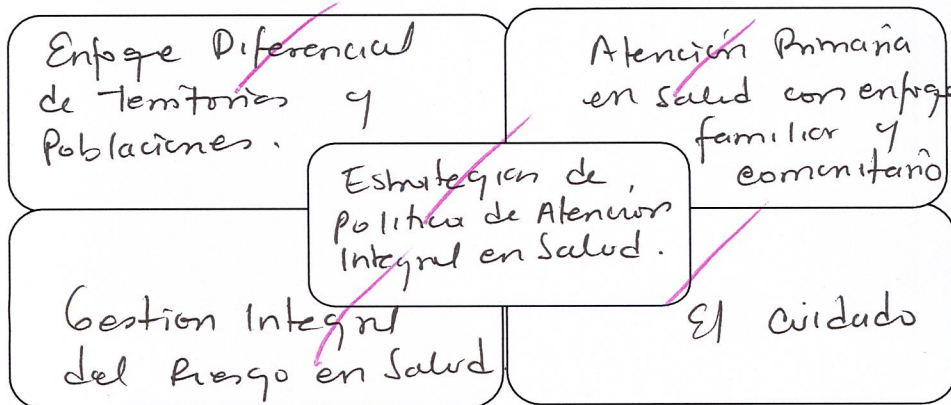 Enfoqe Diferencial
de Territorios y
Poblaciones.
Atención Primaria
en salud con enfoq
familiar y
comunitario
Estrategias de
Política de Atención
Integral en Salud.
Gestion Integral
del Riesgo en Salud
El cuidado